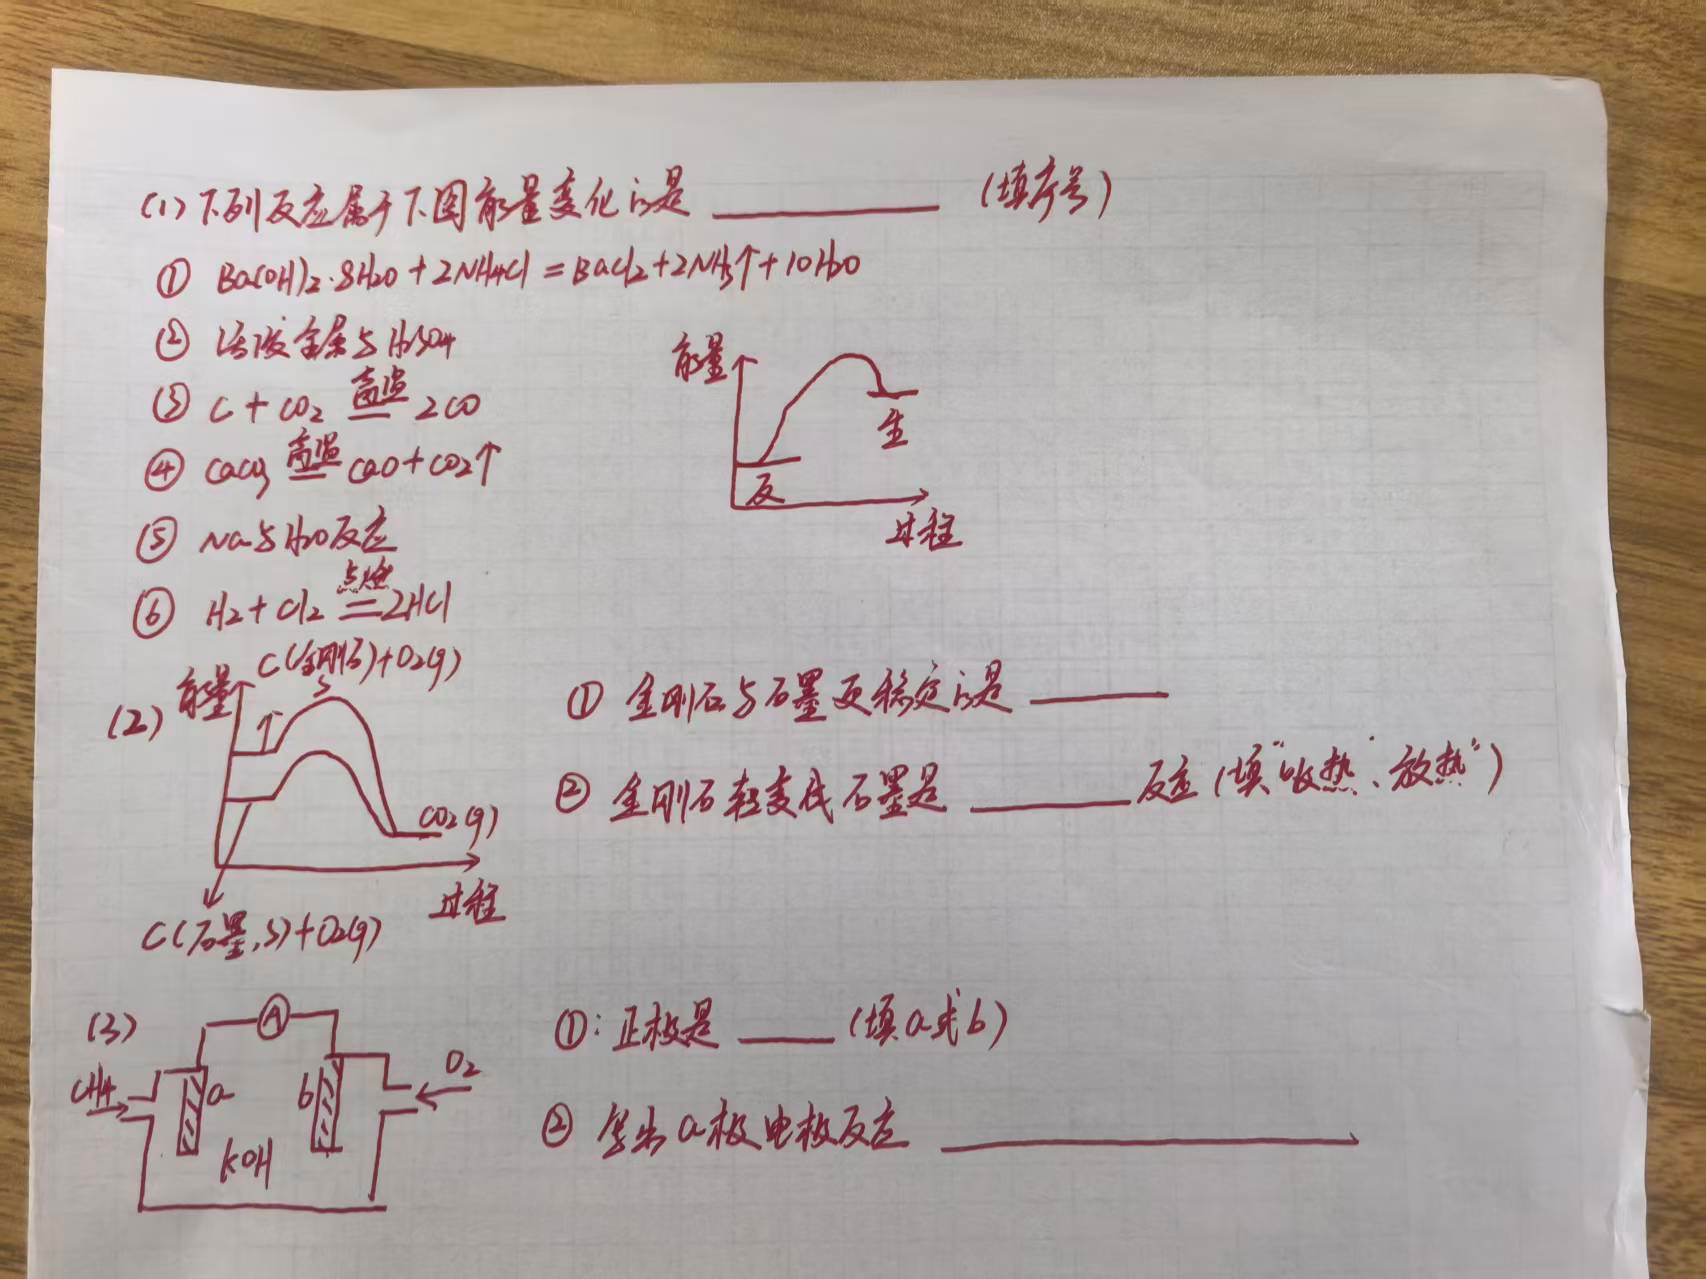 (1)下列反应属于下图能量变化的是 ________ (填序号)
① Ba(OH)2·8H2O+2NH4Cl=BaCl2+2NH3↑+10H2O
② 活泼金属与H2SO4
③ C+CO2 高温 2CO
④ CaCO3 高温 CaO+CO2↑
⑤ Na与H2O反应
⑥ H2+Cl2 点燃 2HCl
能量
生
反
过程
(2)
能量
C(金刚石)+O2(g)
S
CO2(g)
过程
C(石墨,S)+O2(g)
① 金刚石与石墨更稳定的是 ______
② 金刚石转变成石墨是 ______ 反应(填"吸热"、放热")
(3)
A
CH4
a
b
O2
KOH
①:正极是 ____ (填a或b)
② 写出a极电极反应 ____________